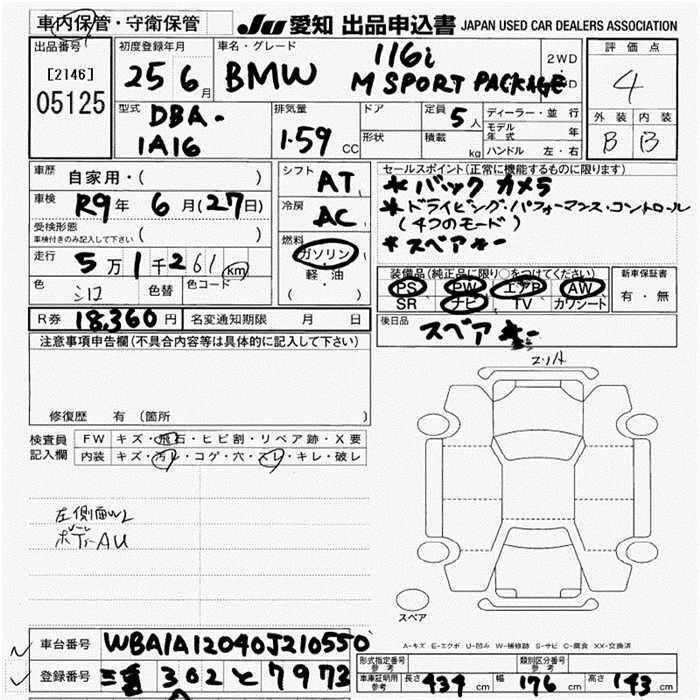 車内保管・守衛保管
JU 愛知 出品申込書 JAPAN USED CAR DEALERS ASSOCIATION
出品番号
[2146]
05125
初度登録年月
25 6月
車名・グレード
BMW 116i
M SPORT PACKAGE
2WD
評価点
4
外装 内装
B B
型式
DBA-
1A16
排気量
1.59 CC
ドア
形状
定員 5人
積載 kg
ディーラー・並行
モデル年式 年
ハンドル 左・右
車歴 自家用・( )
車検 R9年 6月(27日)
受検形態
車検付きのみ記入して下さい ( )
走行 5万1千261km
色 シロ 色替 色コード
シフト AT
冷房 AC
燃料
ガソリン
軽・油
( )
セールスポイント(正常に機能するものに限ります)
*バック カメラ
*ドライビング・パフォーマンス・コントロール
(4つのモード)
*スペアキー
装備品(純正品に限り○をつけてください)
PS PW エアB AW
SR ナビ TV カワシート
新車保証書
有・無
R券 18,360円 名変通知期限 月 日
後日品
スペアキー
注意事項申告欄(不具合内容等は具体的に記入して下さい)
修復歴 有(箇所 )
検査員
記入欄
FW キズ・飛石・ヒビ割・リペア跡・X要
内装 キズ・汚レ・コゲ・穴・スレ・キレ・破レ
左側面W2
ボデーAU
スペア
A-キズ E-エクボ U-凹み W-補修跡 S-サビ C-腐食 XX-交換済
車台番号 WBA1A12040J210550
登録番号 三重 302 と 7973
型式指定番号
参考
類別区分番号
参考
車庫証明用
参考
長さ 434 cm 幅 176 cm 高さ 143 cm